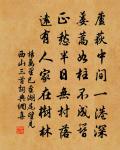 蘆荻中間一港深
蔞蒿如柱不成簪
正愁半日無村落
遠有人家在樹林
楊萬里已至湖尾望見
西山三首詞典網集